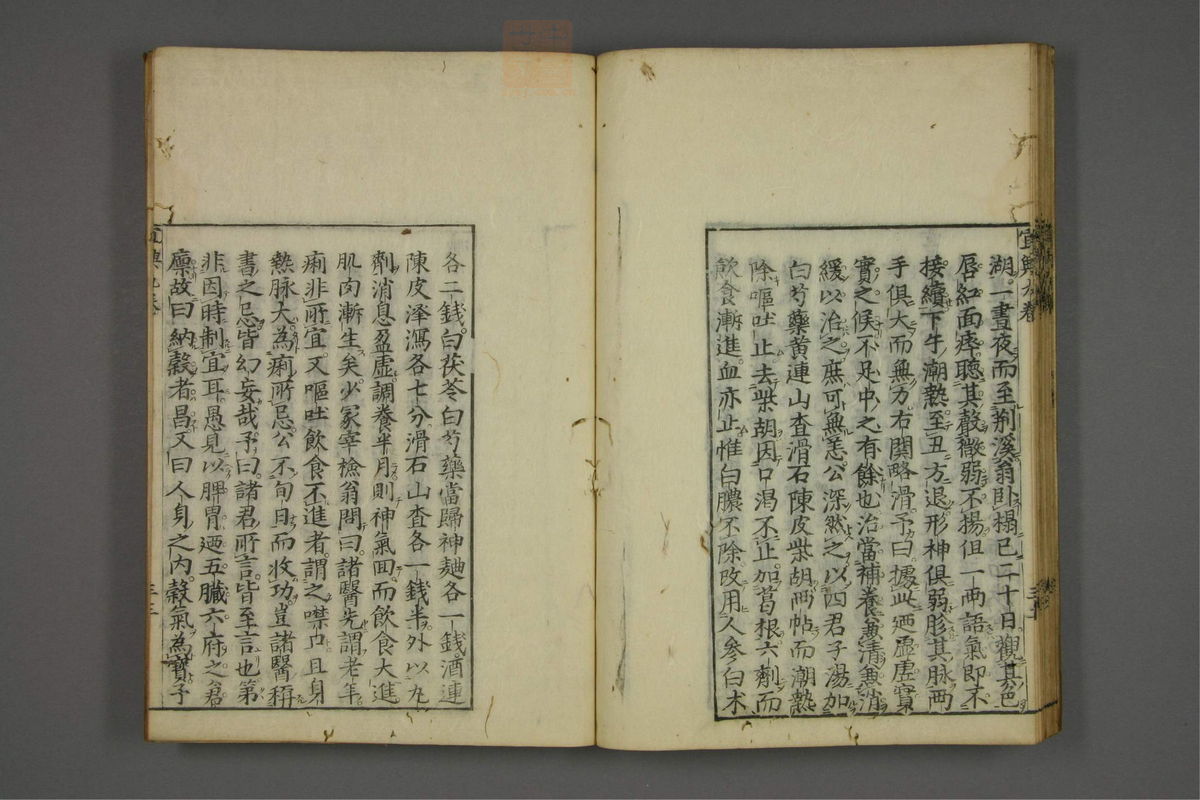 湖一晝夜而至荆溪翁卧榻已二十日觀其色
唇紅面瘁聽其聲微弱不揚但一兩語氣即不
接續下午潮熱至丑方退形神俱弱胗其脉兩
手俱大而無力右關略滑予曰據此廼虛虛實
實之候不足中之有餘也治當補養兼清兼消
緩以治之庶可無恙公深然之以四君子湯加
白芍藥黄連山査滑石陳皮柴胡兩帖而潮熱
除嘔吐止去柴胡因口渴不止加葛根六劑而
飲食漸進血亦止惟白膿不除改用人參白术
各二錢白茯苓白芍藥當歸神麯各一錢酒連
陳皮澤瀉各七分滑石山査各一錢半外以丸
劑消息盈虛調養半月則神氣回而飲食大進
肌肉漸生矣少冢宰檢翁問曰諸醫先謂老年
痢非所宜又嘔吐飲食不進者謂之噤口且身
熱脉大為痢所忌公不旬日而收功豈諸醫稱
書之忌皆幻妄哉予曰諸君所言皆至言也第
非因時制宜耳愚見以脾胃廼五臟六府之君
廪故曰納糓者昌又曰人身之内糓氣為寳子